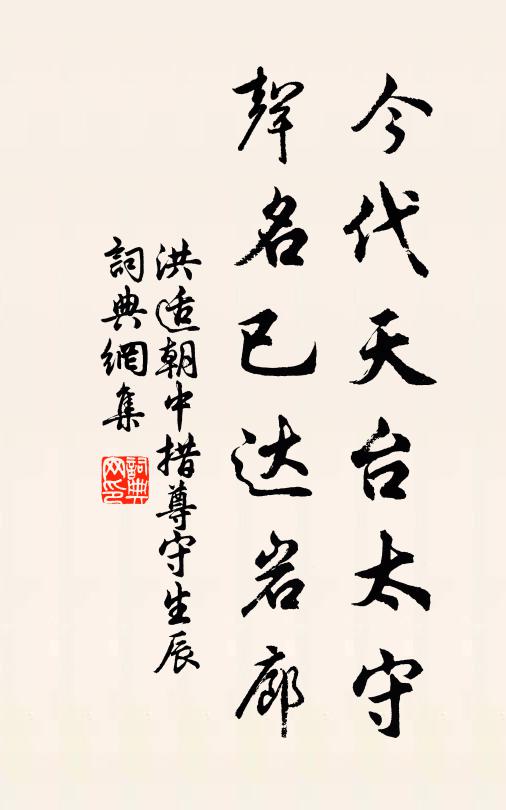 今代天台太守
聲名已达岩廊
洪适朝中措尊守生辰
詞典網集
詞典网印